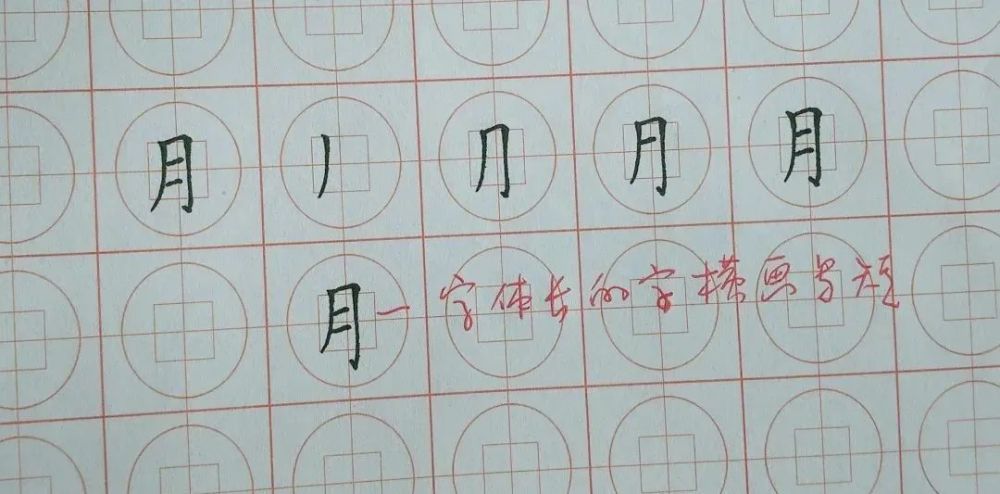 月 丿 ⺆ 月
月 — 字体长的字横画写短